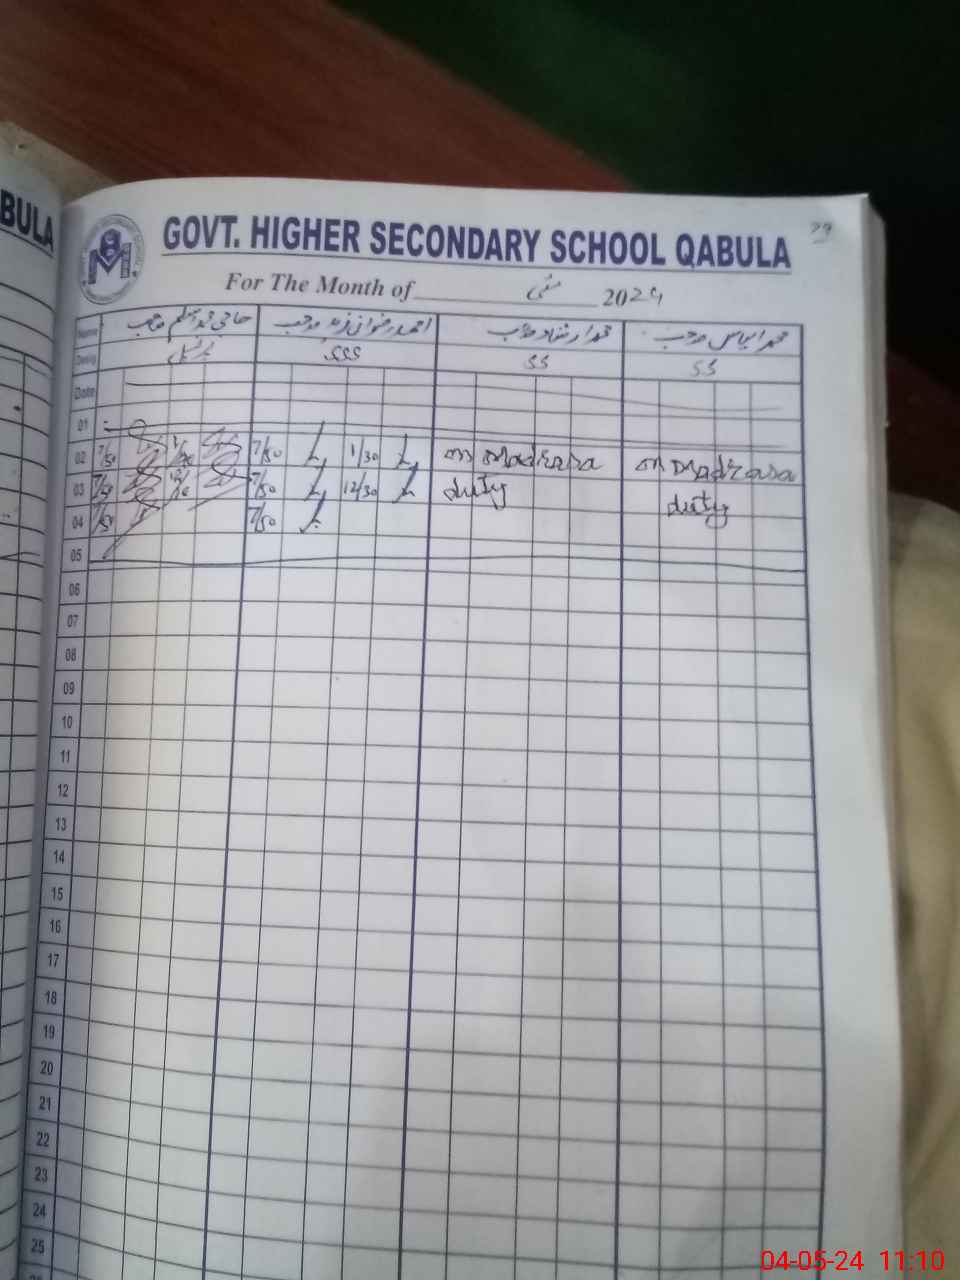 BULA
GOVT. HIGHER SECONDARY SCHOOL QABULA
For The Month of مئی 2024
Name حاجی محمد اسلم صاحب احمد رضوان فرید صاحب محمد ارشاد صاحب محمد الیاس صاحب
Desig پرنسپل SSS SS SS
Date
01
02 7/50 7/50 1/30 on Madrasa on Madrasa
03 7/50 7/50 12/30 duty duty
04 7/50 7/50
05
06
07
08
09
10
11
12
13
14
15
16
17
18
19
20
21
22
23
24
25
04-05-24 11:10